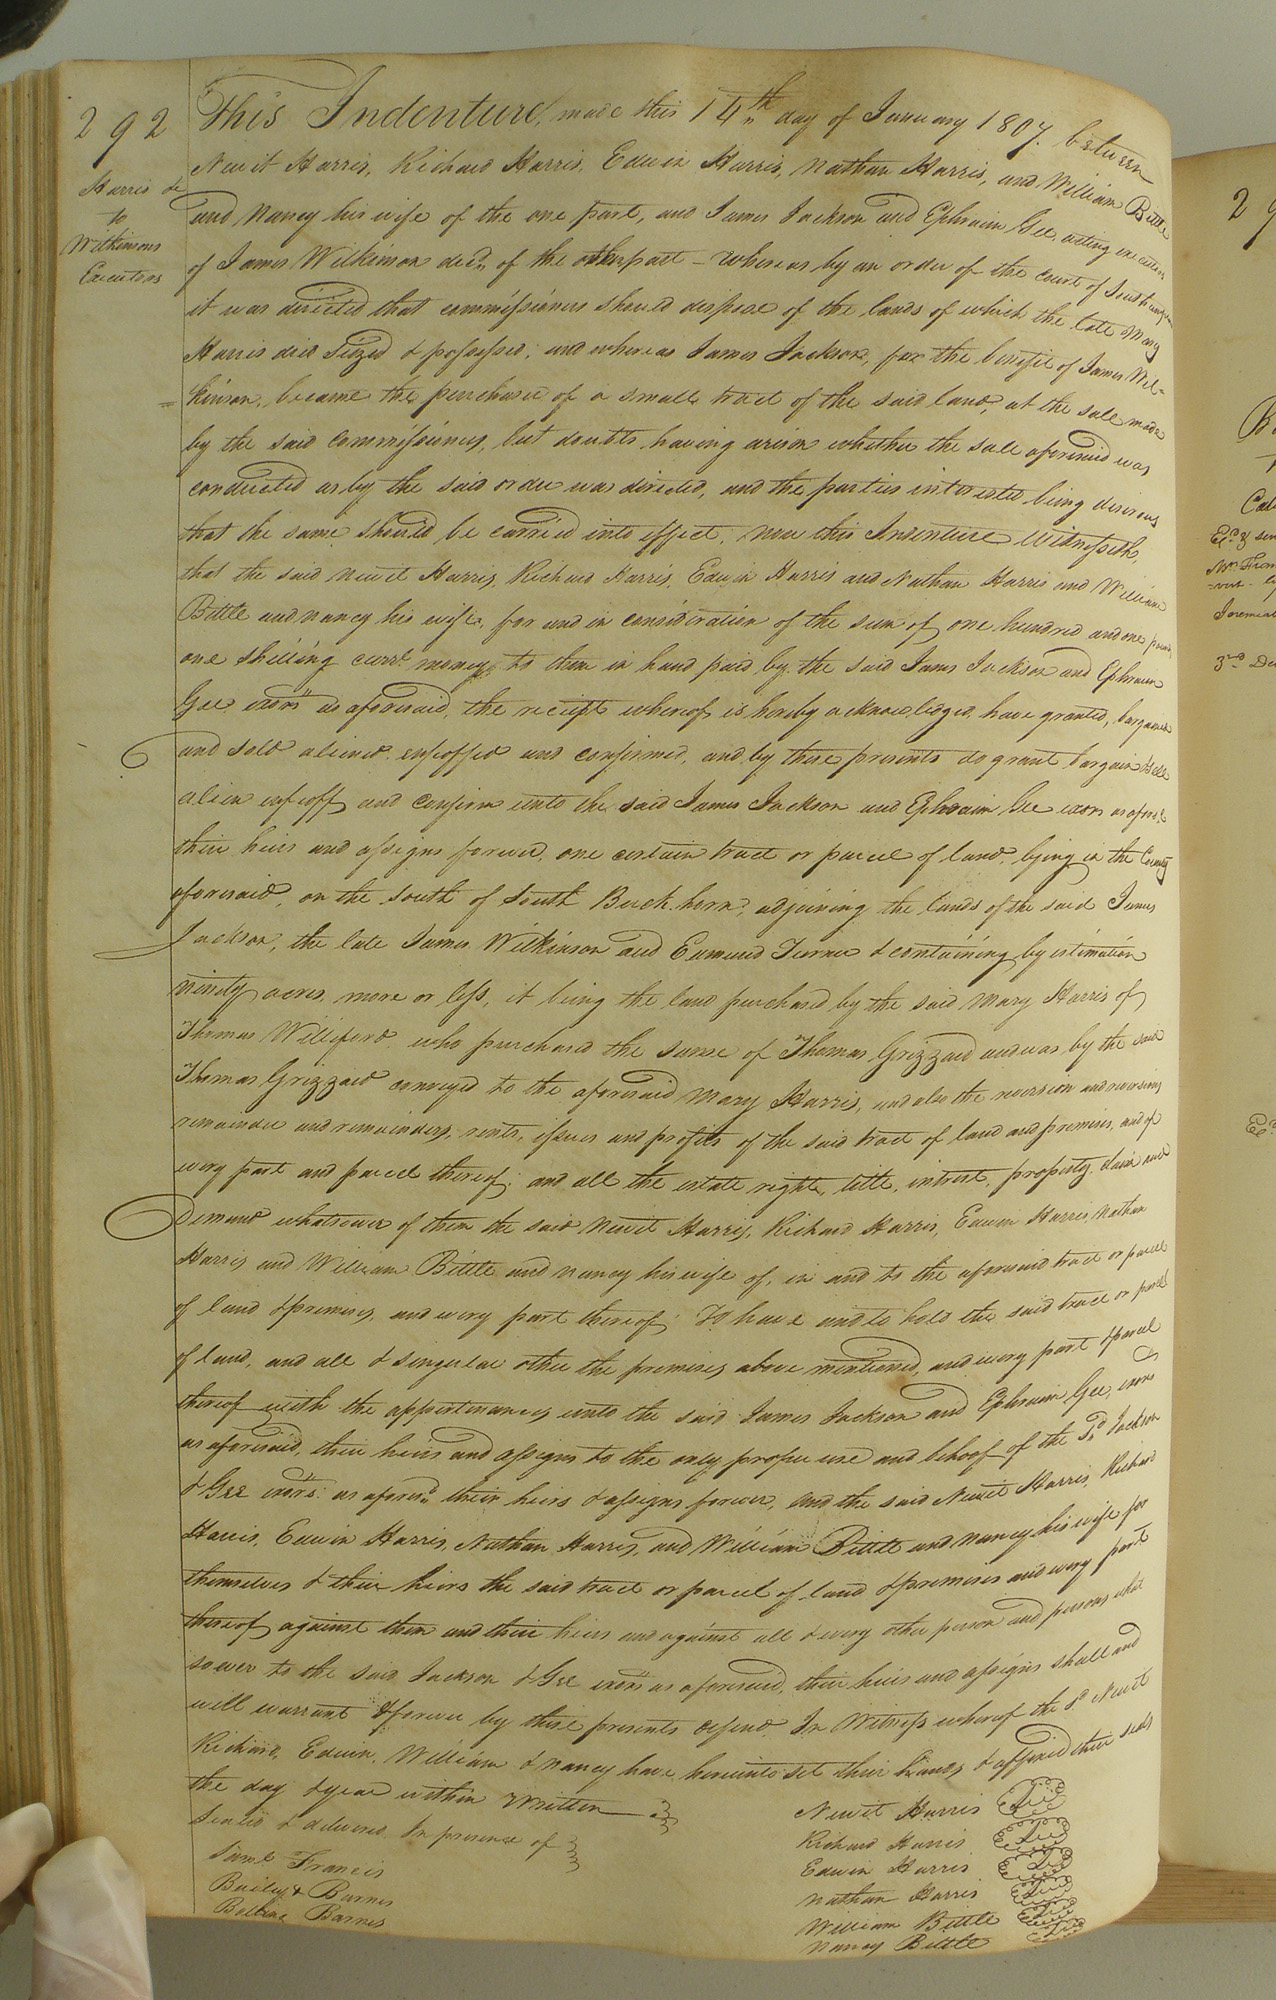 292
Harris &c
to
Wilkinsons
Executors
This Indenture, made this 14th day of January 1807. between
Newit Harris, Richard Harris, Edwin Harris, Nathan Harris, and William Bittle
and Nancy his wife of the one part, and James Jackson and Ephraim Gee, acting executors
of James Wilkinson decd. of the other part - whereas by an order of the court of Southampton
it was directed that commissioners should dispose of the lands of which the late Mary
Harris died Seized & possessed; and whereas James Jackson, for the benefit of James Wil-
=kinson, became the purchaser of a small tract of the said land, at the sale made
by the said commissioners, but doubts having arisen whether the sale aforesaid was
conducted as by the said order was directed, and the parties interested being desirous
that the same should be carried into effect. Now this Indenture Witnesseth,
that the said Newit Harris, Richard Harris, Edwin Harris and Nathan Harris and William
Bittle and Nancy his wife, for and in consideration of the sum of one hundred and one pounds
one shilling currt. money, to them in hand paid by the said James Jackson and Ephraim
Gee exors as aforesaid, the reciept whereof is hereby acknowledged, have granted, bargained
and sold aliened enfeoffed and confirmed, and by these presents do grant bargain & sell
alien enfeoff and confirm unto the said James Jackson and Ephraim Gee exors as aforsd.
their heirs and assigns forever, one certain tract or parcel of land lying in the County
aforesaid, on the south of South Buck horn, adjoining the lands of the said James
Jackson, the late James Wilkinson and Edmund Turner & containing by estimation
ninety acres more or less, it being the land purchased by the said Mary Harris of
Thomas Williford who purchased the same of Thomas Grizzard and was by the said
Thomas Grizzard conveyed to the aforesaid Mary Harris, and also the reversion and reversions
remainder and remainders, rents, issues and profits of the said tract of land and premises, and of
every part and parcel thereof; and all the estate right, title, intrest, property claim and
Demand whatsoever of them the said Newit Harris, Richard Harris, Edwin Harris, Nathan
Harris and William Bittle and Nancy his wife of, in and to the aforesaid tract or parcel
of land & premises, and every part thereof; To have and to hold the said tract or parcel
of land, and all & singular other the premises above mentioned, and every part & parcel
thereof with the appurtenances unto the said James Jackson and Ephraim Gee, exors
as aforesaid, their heirs and assigns to the only proper use and behoof of the Sd. Jackson
& Gee exors. as aforesd. their heirs & assigns forever, and the said Newit Harris, Richard
Harris, Edwin Harris, Nathan Harris, and William Bittle and Nancy his wife for
themselves & their heirs the said tract or parcel of land & premises and every part
thereof against them and their heirs and against all & every other person and persons what
soever to the said Jackson & Gee exors as aforesaid, their heirs and assigns shall and
will warrant & forever by these presents defend. In Witness whereof the sd Newit
Richard, Edwin, William & Nancy have hereunto set their hands & affixed their seals
the day & year within Written
Sealed & delivered In presence of
Saml Francis
Bailey Barnes
Barnes
Newit Harris
Richard Harris
Edwin Harris
Nathan Harris
William Bittle
Nancy Bittle